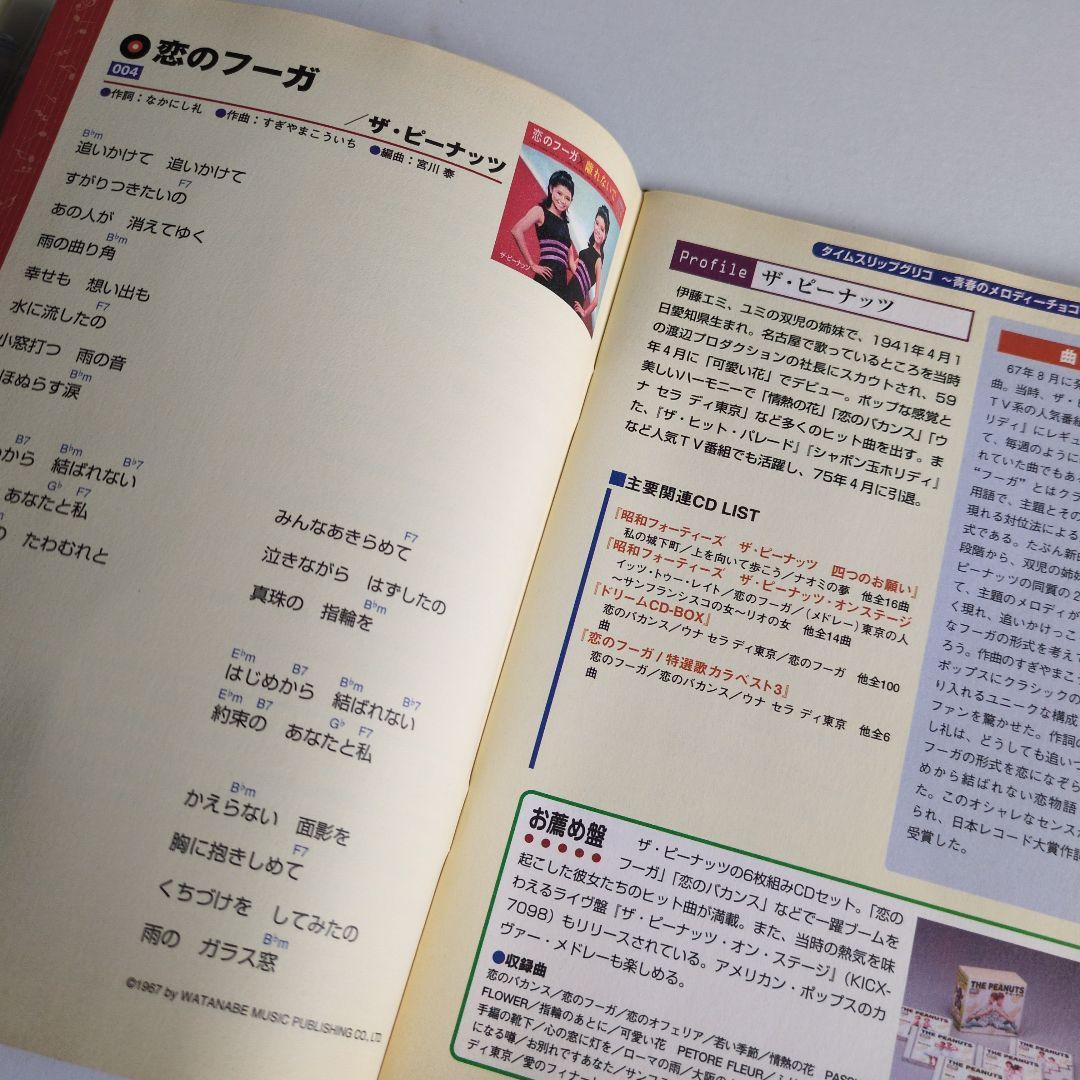 恋のフーガ
004
／ザ・ピーナッツ
●作詞：なかにし礼 ●作曲：すぎやまこういち ●編曲：宮川 泰
恋のフーガ
離れないで
ザ・ピーナッツ
B♭m
追いかけて 追いかけて
F7
すがりつきたいの
あの人が 消えてゆく
B♭m
雨の曲り角
幸せも 想い出も
F7
水に流したの
小窓打つ 雨の音
B♭m
ほぬらす涙
B7 B♭m B♭7
から 結ばれない
G♭ F7
あなたと私
たわむれと
みんなあきらめて
F7
泣きながら はずしたの
真珠の 指輪を
B♭m
E♭m B7 B♭m B♭7
はじめから 結ばれない
E♭m B7 G♭ F7
約束の あなたと私
B♭m
かえらない 面影を
F7
胸に抱きしめて
くちづけを してみたの
B♭m
雨の ガラス窓
©1967 by WATANABE MUSIC PUBLISHING CO., LTD
タイムスリップグリコ ～青春のメロディーチョコ
Profile ザ・ピーナッツ
伊藤エミ、ユミの双児の姉妹で、1941年4月1
日愛知県生まれ。名古屋で歌っているところを当時
の渡辺プロダクションの社長にスカウトされ、59
年4月に「可愛い花」でデビュー。ポップな感覚と
美しいハーモニーで「情熱の花」「恋のバカンス」「ウ
ナ セラ ディ東京」など多くのヒット曲を出す。ま
た、『ザ・ヒット・パレード』『シャボン玉ホリディ』
など人気TV番組でも活躍し、75年4月に引退。
■主要関連CD LIST
『昭和フォーティーズ ザ・ピーナッツ 四つのお願い』
私の城下町／上を向いて歩こう／ナオミの夢 他全16曲
『昭和フォーティーズ ザ・ピーナッツ・オンステージ
イッツ・トゥー・レイト／恋のフーガ／（メドレー）東京の人
～サンフランシスコの女～リオの女 他全14曲
『ドリームCD-BOX』
恋のバカンス／ウナ セラ ディ東京／恋のフーガ 他全100
曲
『恋のフーガ / 特選歌カラベスト3』
恋のフーガ／恋のバカンス／ウナ セラ ディ東京 他全6
曲
曲
67年8月に発
曲。当時、ザ・ピ
TV系の人気番組
リディ』にレギュ
て、毎週のように
れていた曲でもあ
“フーガ”とはクラ
用語で、主題とその
現れる対位法による
式である。たぶん新曲
段階から、双児の姉妹
ピーナッツの同質の2
て、主題のメロディが
く現れ、追いかけっこ
なフーガの形式を考えて
ろう。作曲のすぎやまこ
ポップスにクラシックの
り入れるユニークな構成
ファンを驚かせた。作詞の
し礼は、どうしても追いつ
フーガの形式を恋になぞら
めから結ばれない恋物語
た。このオシャレなセンス
られ、日本レコード大賞作詩
受賞した。
お薦め盤
ザ・ピーナッツの6枚組みCDセット。「恋の
フーガ」「恋のバカンス」などで一躍ブームを
起こした彼女たちのヒット曲が満載。また、当時の熱気を味
わえるライヴ盤『ザ・ピーナッツ・オン・ステージ』（KICX-
7098）もリリースされている。アメリカン・ポップスのカ
ヴァー・メドレーも楽しめる。
●収録曲
恋のバカンス／恋のフーガ／恋のオフェリア／若い季節／情熱の花 PASS
FLOWER／指輪のあとに／可愛い花 PETORE FLEUR／ふり
手編の靴下／心の窓に灯を／ローマの雨／大阪の
になる噂／お別れですあなた／サンフ
ディ東京／愛のフィナー
THE PEANUTS